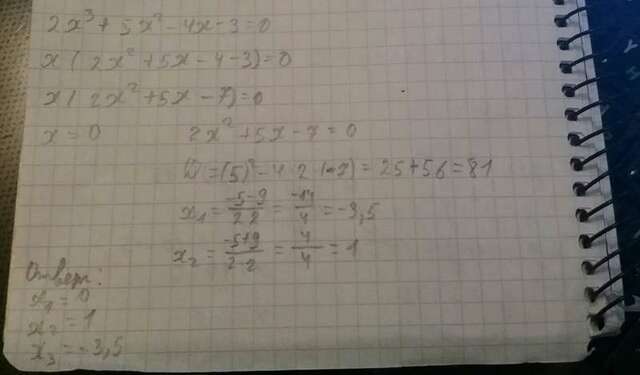 2x³ + 5x² - 4x - 3 = 0
x(2x² + 5x - 4 - 3) = 0
x(2x² + 5x - 7) = 0
x = 0 2x² + 5x - 7 = 0
D = (5)² - 4·2·(-7) = 25 + 56 = 81
x₁ = (-5-9)/(2·2) = -14/4 = -3,5
x₂ = (-5+9)/(2·2) = 4/4 = 1
Ответ:
x₁ = 0
x₂ = 1
x₃ = -3,5